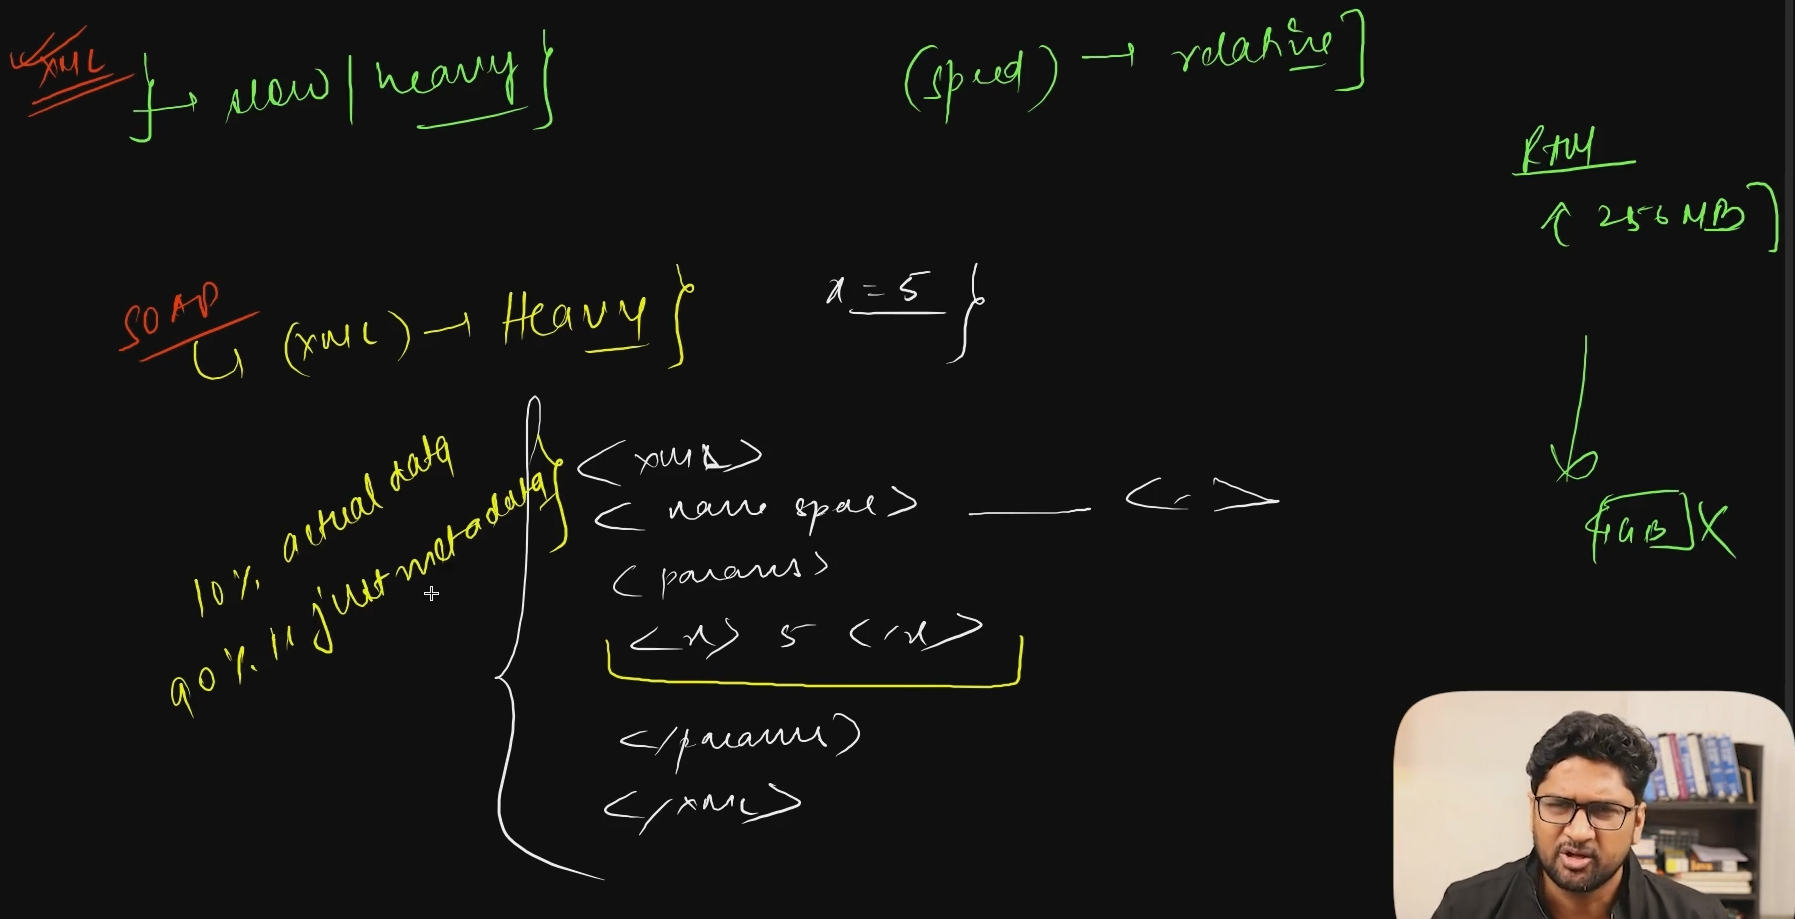 XML → slow | heavy }
(speed) → relative ]
RAM
↑ 256 MB ]
SOAP
↳ (XML) → Heavy }
x = 5 }
10% actual data
90% is just metadata }
<XML>
<name space> —— < >
<params>
<x> 5 </x>
</params>
</XML>